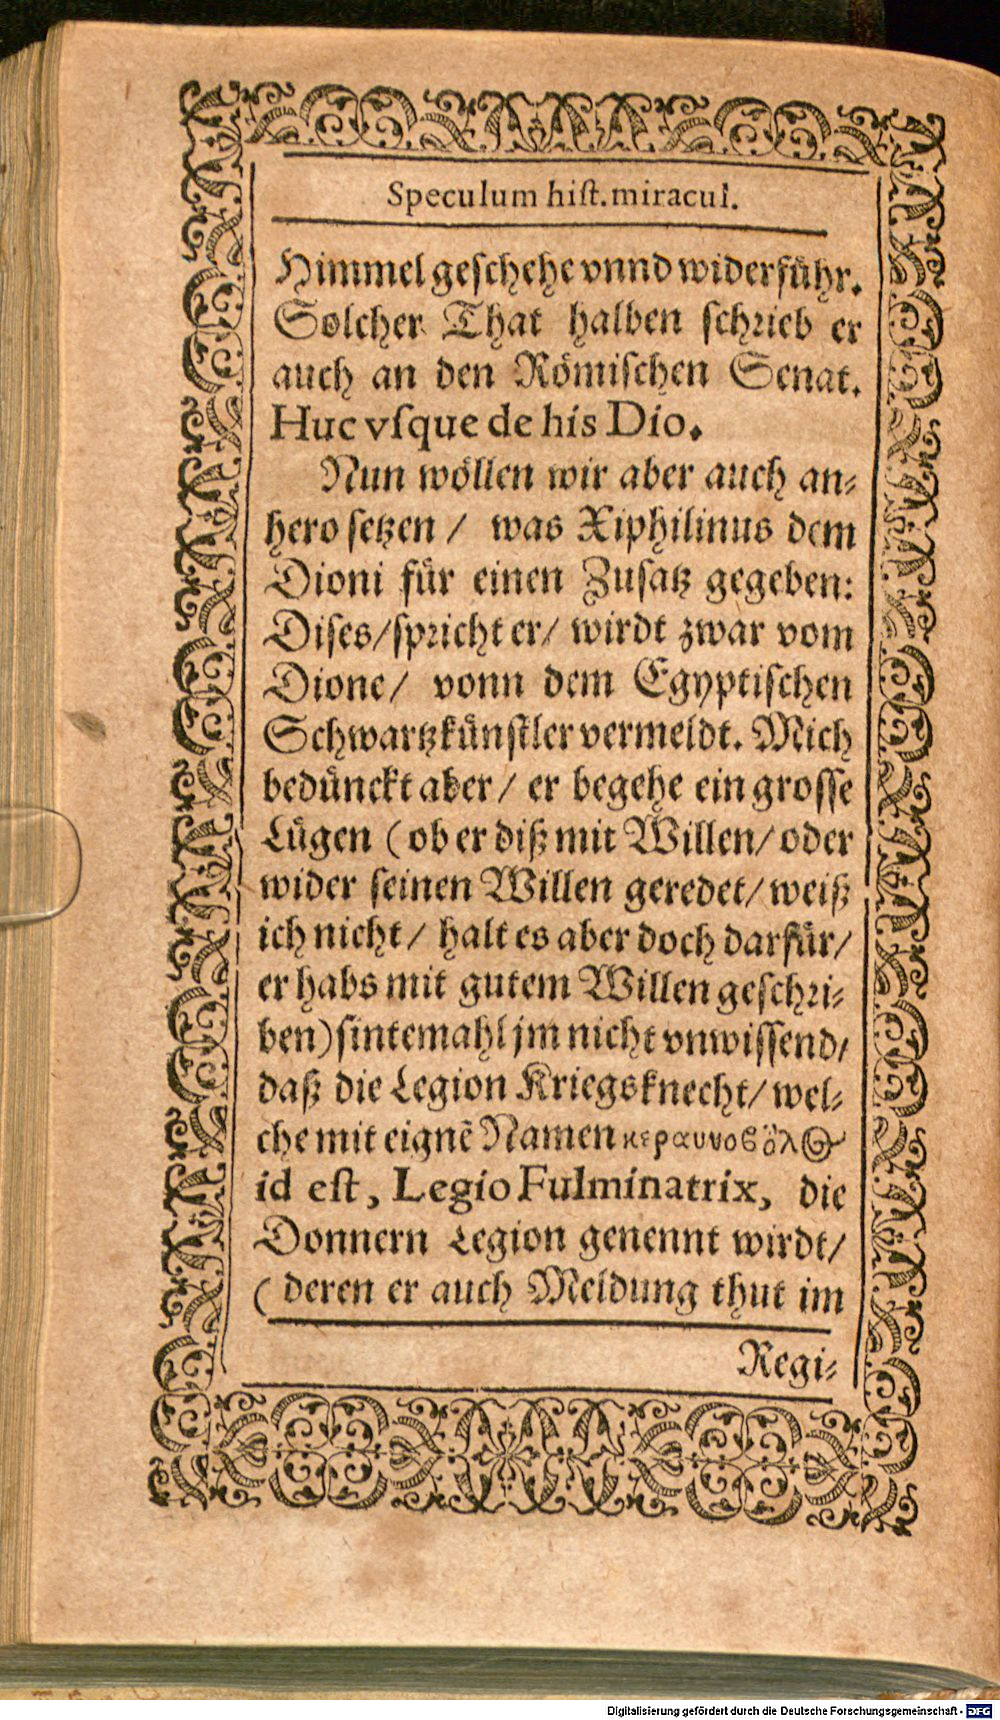 Speculum hist. miracul.
Himmel geschehe vnnd widerführ.
Solcher That halben schrieb er
auch an den Römischen Senat.
Huc vsque de his Dio.
Nun wöllen wir aber auch an-
hero setzen / was Xiphilinus dem
Dioni für einen Zusatz gegeben:
Dises/spricht er/ wirdt zwar vom
Dione/ vonn dem Egyptischen
Schwartzkünstler vermeldt. Mich
bedünckt aber/ er begehe ein grosse
Lügen (ob er diß mit Willen/oder
wider seinen Willen geredet/weiß
ich nicht/ halt es aber doch darfür/
er habs mit gutem Willen geschri-
ben) sintemahl jm nicht vnwissend/
daß die Legion Kriegsknecht/wel-
che mit eignẽ Namen κεραυνοβόλος
id est, Legio Fulminatrix, die
Donnern Legion genennt wirdt/
( deren er auch Meldung thut im
Regi-
Digitalisierung gefördert durch die Deutsche Forschungsgemeinschaft - DFG